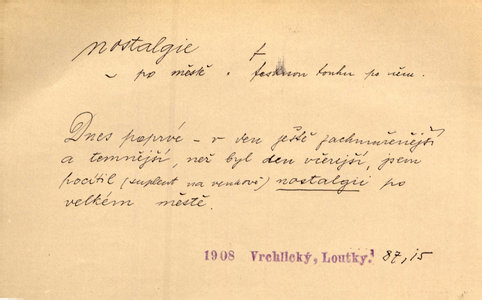 nostalgie †
~ po městě • tesknou touhu po něm.
Dnes poprvé – v den ještě zachmuřenější
a temnější, než byl den včerejší, jsem
pocítil (suplent na venkově) nostalgii po
velkém městě.
1908 Vrchlický, Loutky.¹ 87, 15